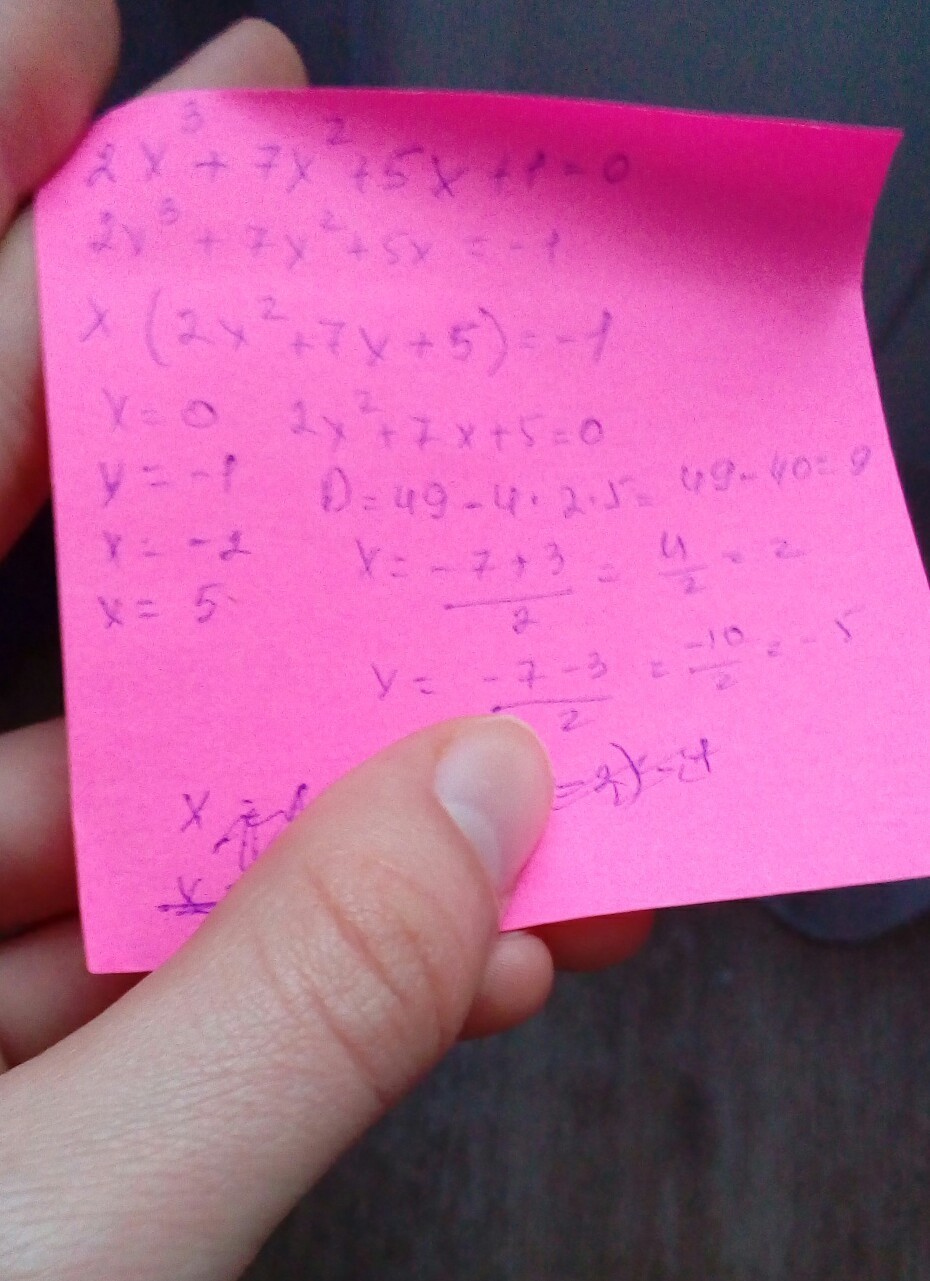 2x³ + 7x² + 5x + 1 = 0
2x³ + 7x² + 5x = -1
x (2x² + 7x + 5) = -1
x = 0 2x² + 7x + 5 = 0
x = -1 D = 49 - 4 · 2 · 5 = 49 - 40 = 9
x = -2 x = -7 + 3 / 2 = 4 / 2 = 2
x = 5
x = -7 - 3 / 2 = -10 / 2 = -5